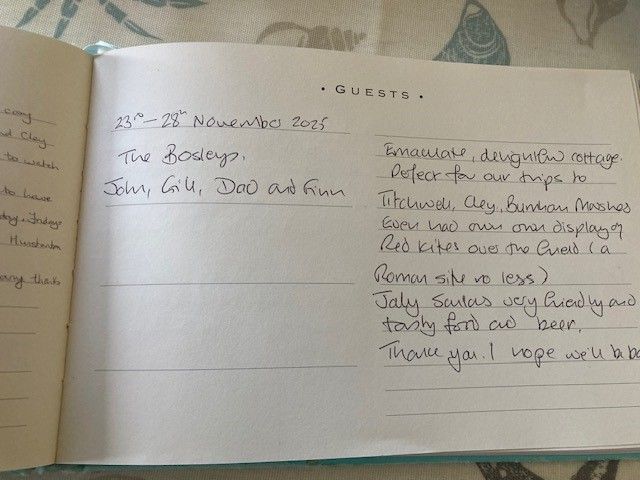 cosy
and Cley
to watch
to have
many thanks
• GUESTS •
23rd – 28th November 2025
The Bosleys,
John, Gill, Dad and Finn
Emaculate, delightful cottage.
Perfect for our trips to
Titchwell, Cley, Burnham Marshes
Even had own own display of
Red Kites over the field (a
Roman site no less)
Jolly Sailors very friendly and
tasty food and beer.
Thank you. I hope we'll be